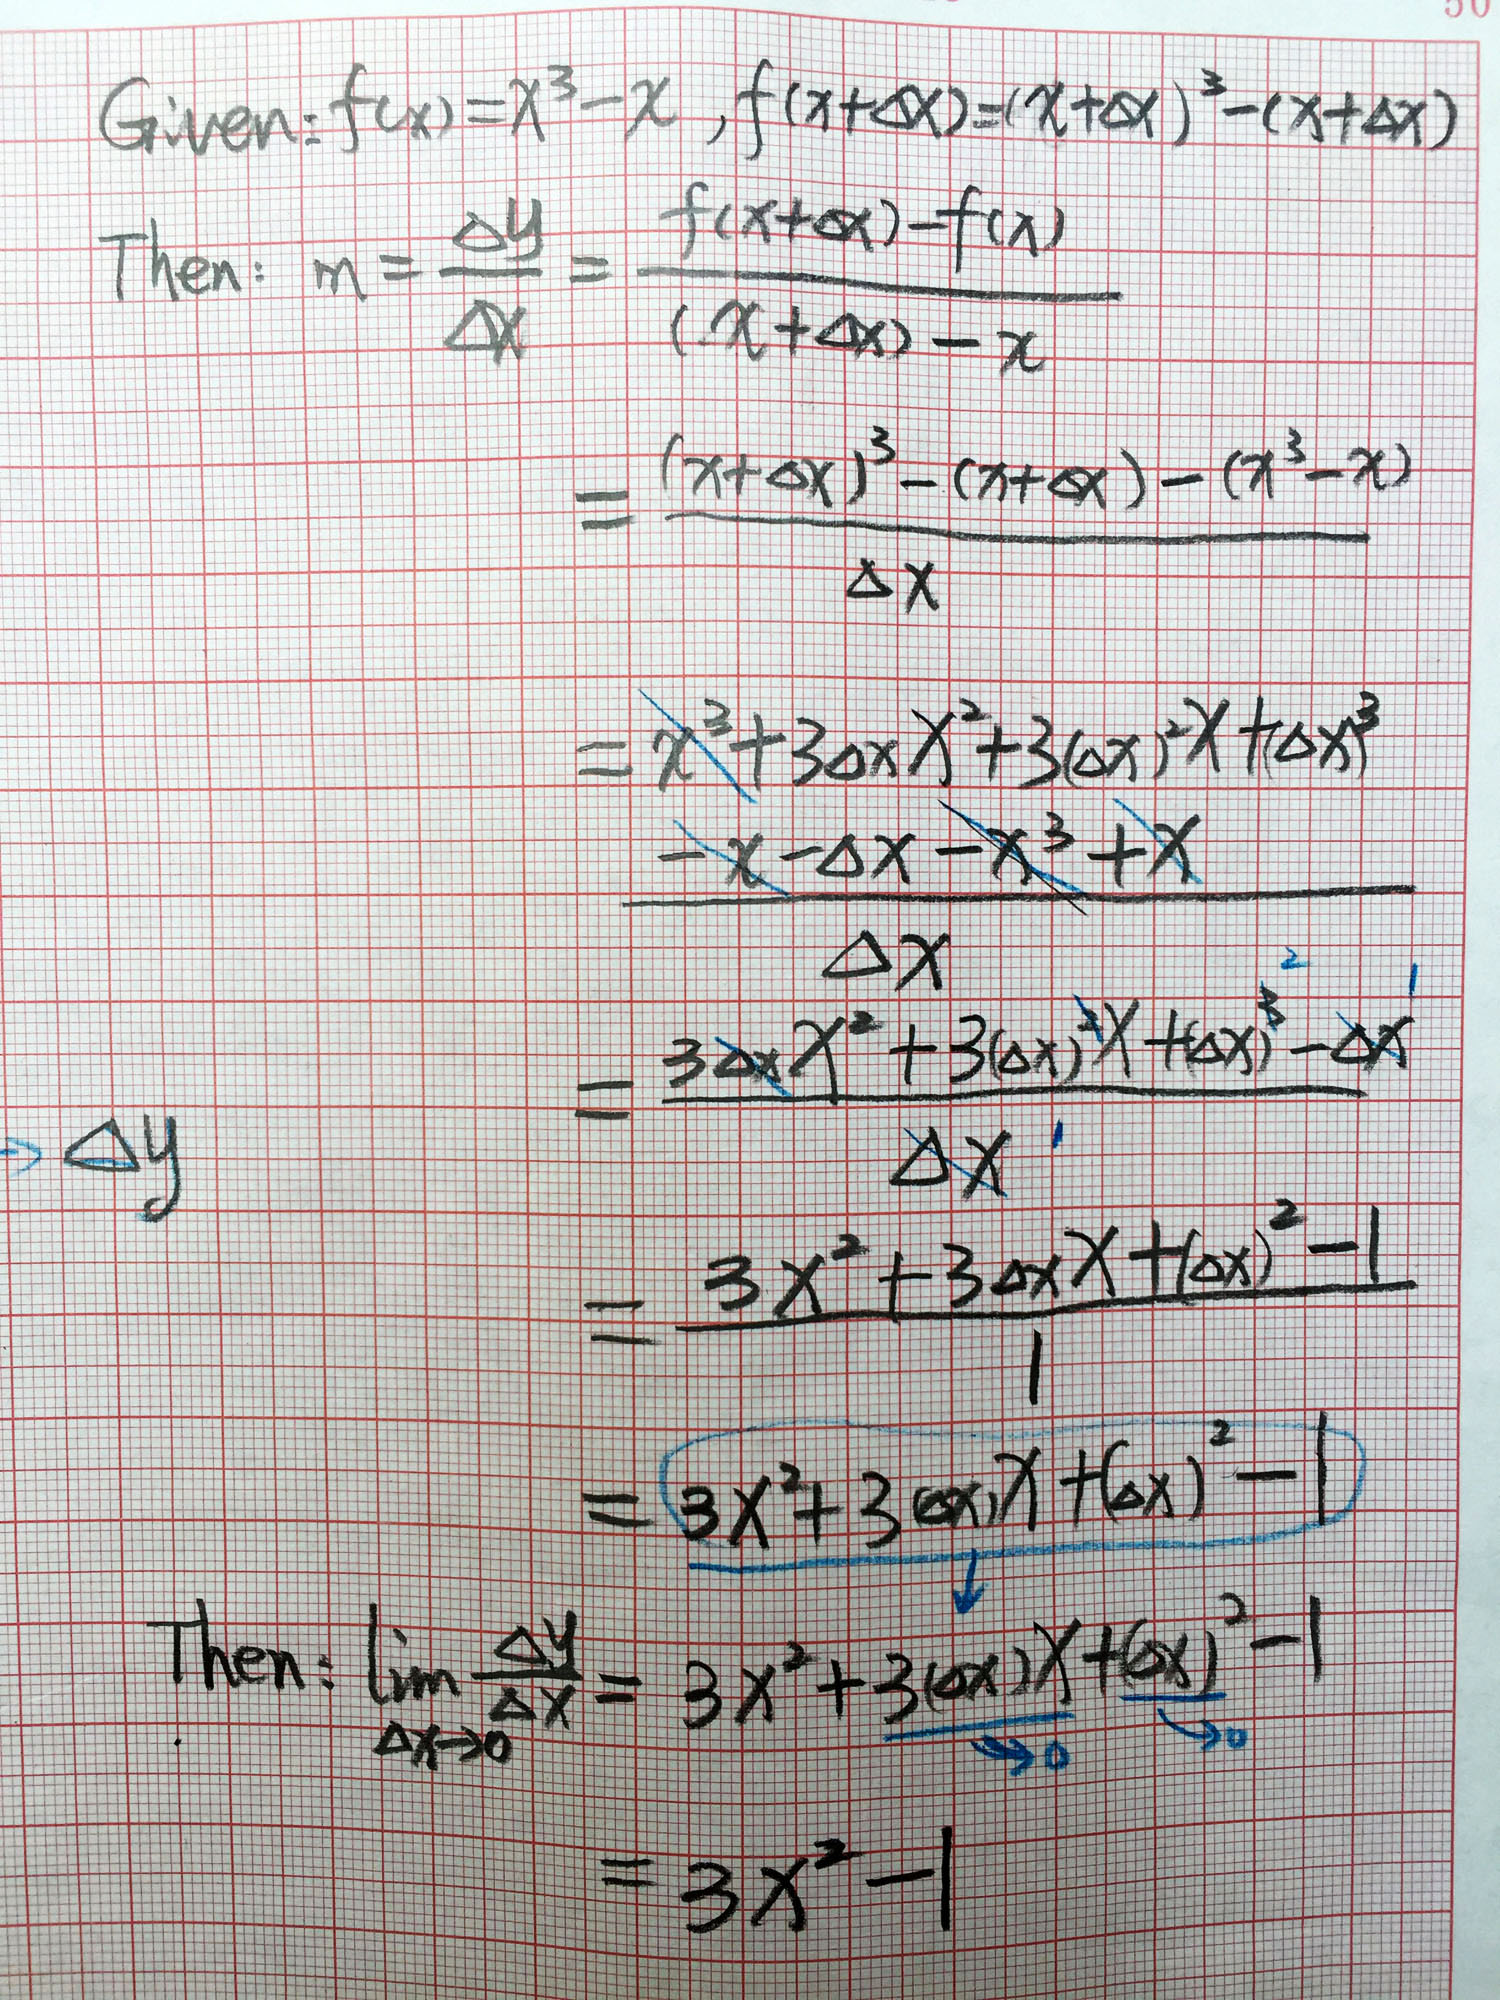 50
Given: f(x)=x³-x, f(x+Δx)=(x+Δx)³-(x+Δx)
Then: m = Δy/Δx = f(x+Δx)-f(x) / (x+Δx)-x
= (x+Δx)³-(x+Δx)-(x³-x) / Δx
= x³+3Δx x²+3(Δx)²x+(Δx)³
-x-Δx-x³+x
Δx
2 1
= 3Δx x²+3(Δx)²x+(Δx)³-Δx
Δx 1
→ Δy
= 3x²+3Δx x+(Δx)²-1 / 1
= 3x²+3(Δx)x+(Δx)²-1
↓
Then: lim Δy/Δx = 3x²+3(Δx)x+(Δx)²-1
Δx→0 →0 →0
= 3x²-1